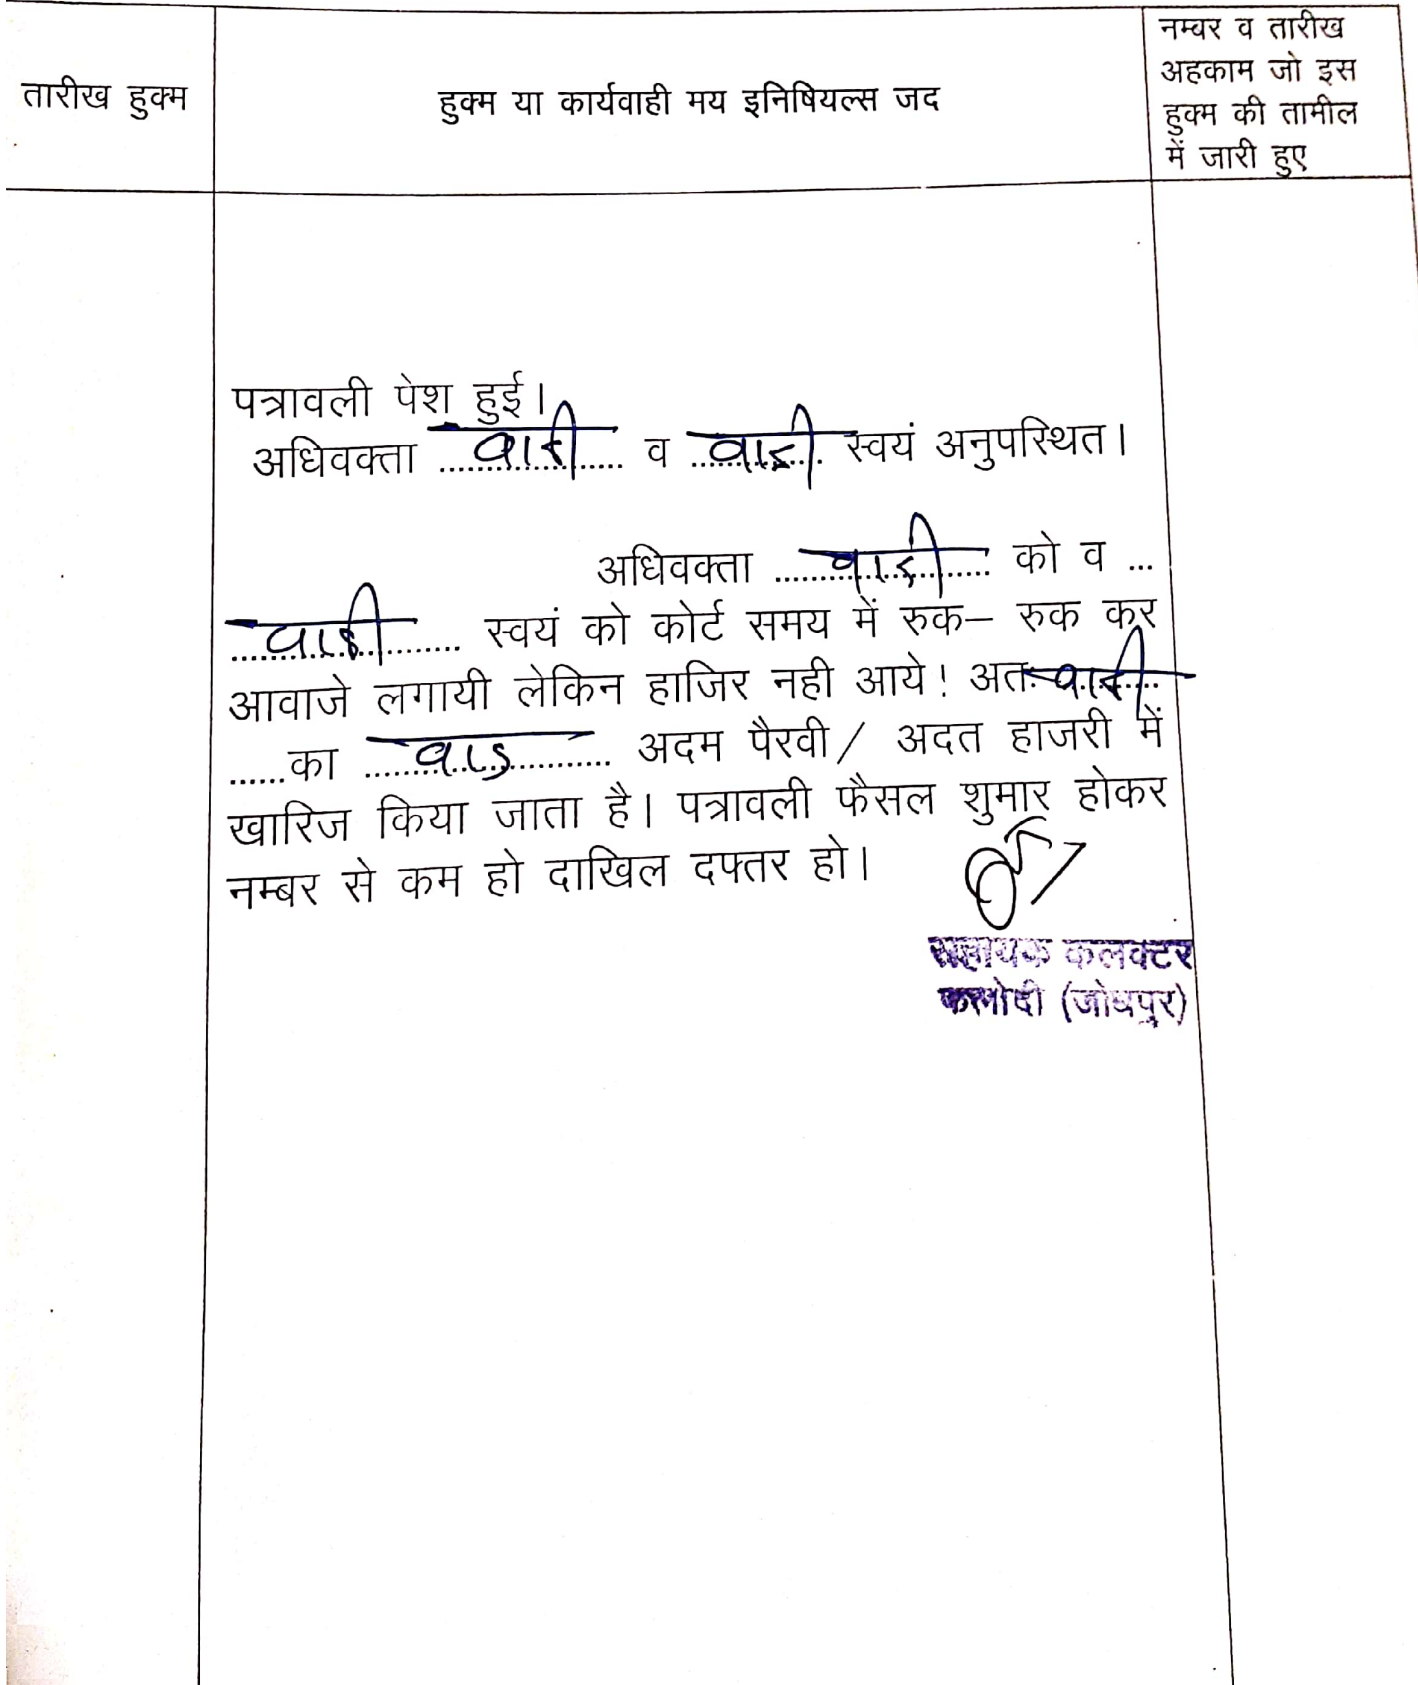 तारीख हुक्म
हुक्म या कार्यवाही मय इनिषियल्स जद
नम्बर व तारीख
अहकाम जो इस
हुक्म की तामील
में जारी हुए
पत्रावली पेश हुई।
अधिवक्ता ....वादी.... व ....वादी.... स्वयं अनुपस्थित।
अधिवक्ता ....वादी.... को व ...
....वादी.... स्वयं को कोर्ट समय में रुक– रुक कर
आवाजे लगायी लेकिन हाजिर नही आये! अतः वादी....
......का ....वाद.... अदम पैरवी/ अदत हाजरी में
खारिज किया जाता है। पत्रावली फैसल शुमार होकर
नम्बर से कम हो दाखिल दफ्तर हो।
सहायक कलक्टर
फलोदी (जोधपुर)